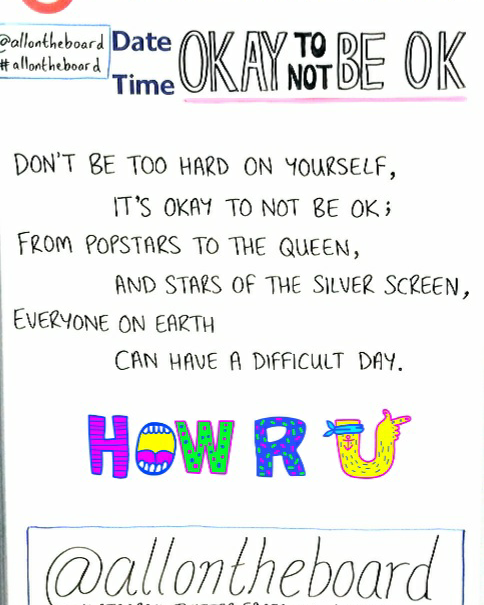 @allontheboard
#allontheboard
Date
Time
OKAY TO NOT BE OK
DON'T BE TOO HARD ON YOURSELF,
IT'S OKAY TO NOT BE OK;
FROM POPSTARS TO THE QUEEN,
AND STARS OF THE SILVER SCREEN,
EVERYONE ON EARTH
CAN HAVE A DIFFICULT DAY.
HOW R U
@allontheboard